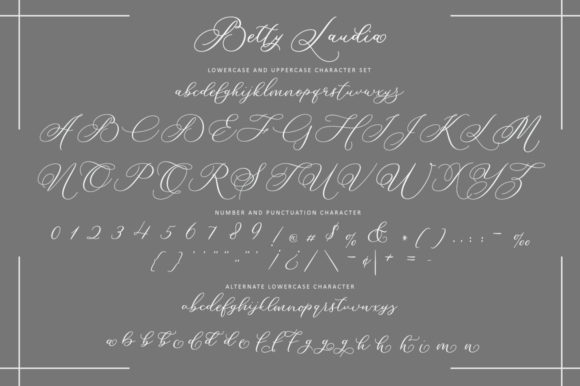 Betty Laudia
LOWERCASE AND UPPERCASE CHARACTER SET
abcdefghijklmnopqrstuvwxyz
ABCDEFGHIJKLM
NOPQRSTUVWXYZ
NUMBER AND PUNCTUATION CHARACTER
0 1 2 3 4 5 6 7 8 9 ! @ # $ % & * ( ) . , : ; - ‰
ALTERNATE LOWERCASE CHARACTER
abcdefghijklmnopqrstuvwxyz